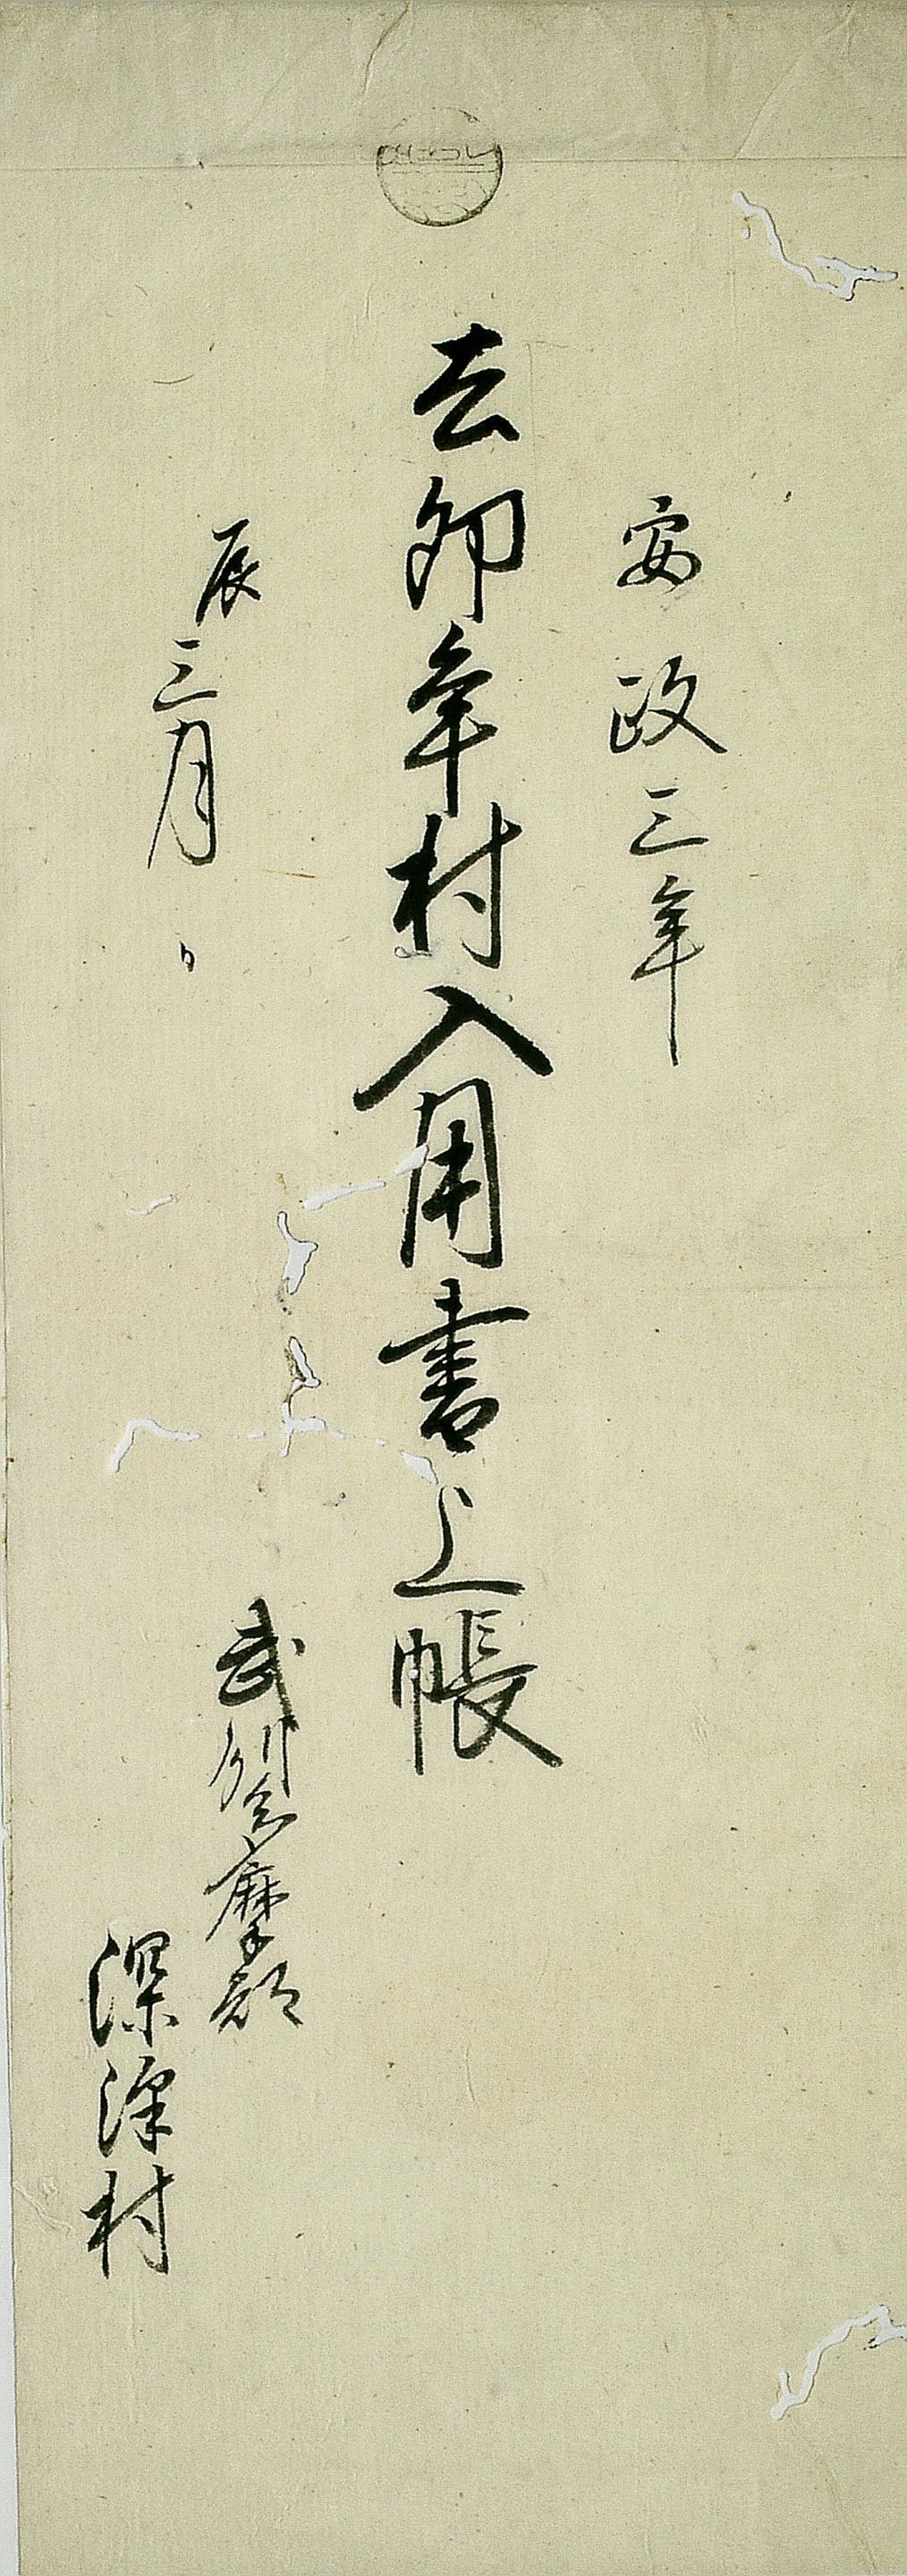 安政三年
去卯年村入用書上帳
辰三月日
武州多摩郡
深澤村